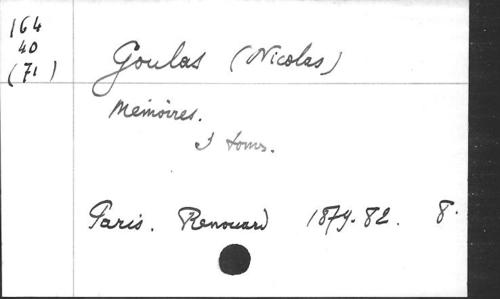 164
40
(71)
Goulas (Nicolas)
Mémoires.
3 toms.
Paris. Renouard 1879-82. 8°.